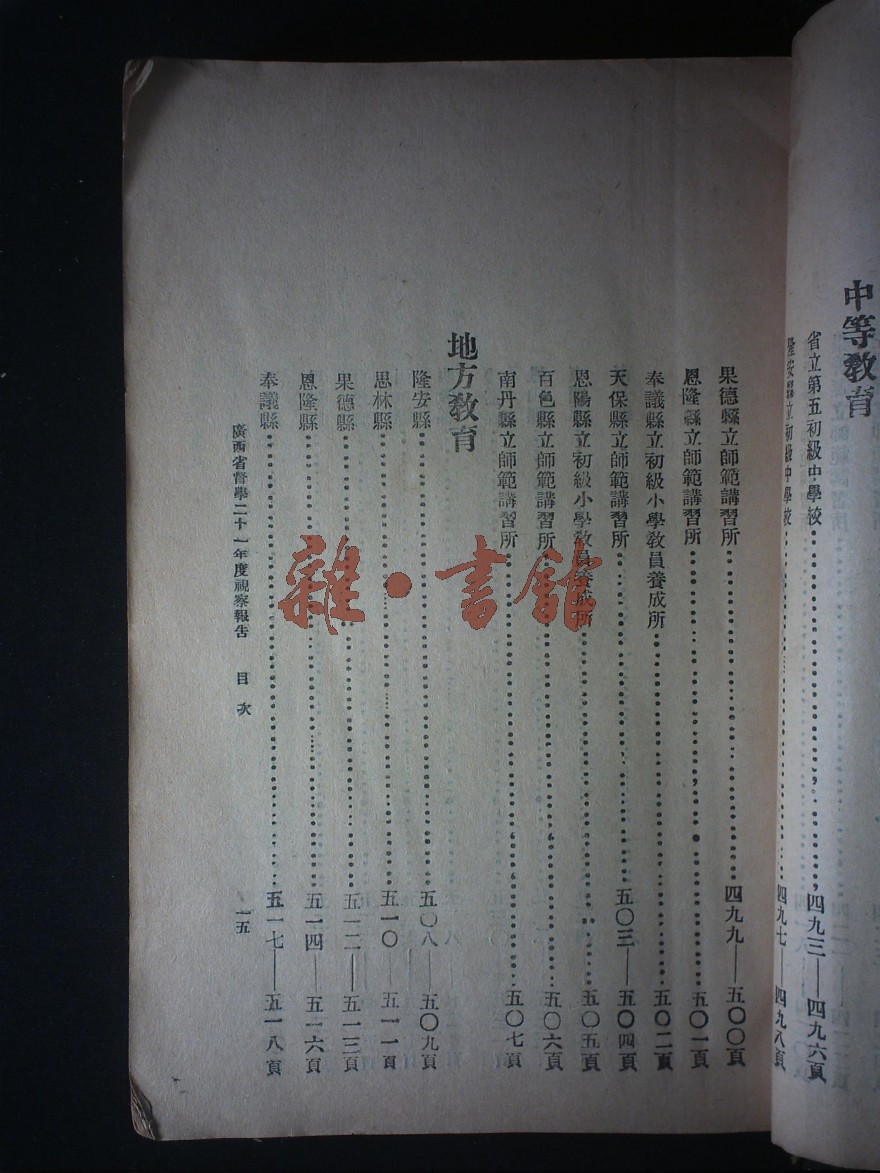 中等教育
省立第五初級中學校……四九三——四九六頁
隆安縣立初級中學校……四九七——四九八頁
果德縣立師範講習所……四九九——五〇〇頁
恩隆縣立師範講習所……五〇一頁
奉議縣立初級小學教員養成所……五〇二頁
天保縣立師範講習所……五〇三——五〇四頁
恩陽縣立初級小學教員養成所……五〇五頁
百色縣立師範講習所……五〇六頁
南丹縣立師範講習所……五〇七頁
地方教育
隆安縣……五〇八——五〇九頁
思林縣……五一〇——五一一頁
果德縣……五一二——五一三頁
恩隆縣……五一四——五一六頁
奉議縣……五一七——五一八頁
廣西省督學二十一年度視察報告 目次 一五
雜·書館